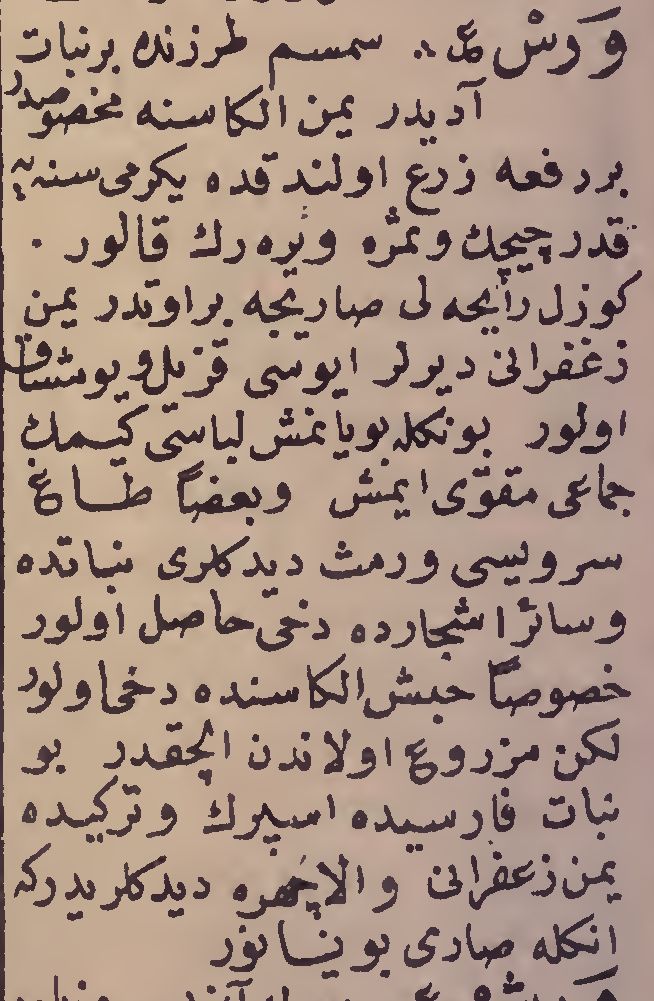 وَرْسْ ع؞ سمسم طرزنده برنبات
آديدر يمن الكاسنه مخصوصدر
بر دفعه زرع اولندقده يكرمى سنه يه
قدر چيچك وثمره ويره رك قالور .
كوزل رايحه لى صاريجه براوتدر يمن
زعفرانى ديرلر ايوسى قزيل ويومشاق
اولور بونكله بويانمش لباسى كيمك
جماعى مقوّى ايمش وبعضاً طاغ
سرويسى ورمث ديدكلرى نباتده
وسائر اشجارده دخى حاصل اولور
خصوصاً حبش الكاسنده دخى اولور
لكن مزروع اولاندن الچقدر بو
نبات فارسيده اسپرك وتركيده
يمن زعفرانى والاچهره ديدكلريدركه
انكله صارى بويانور